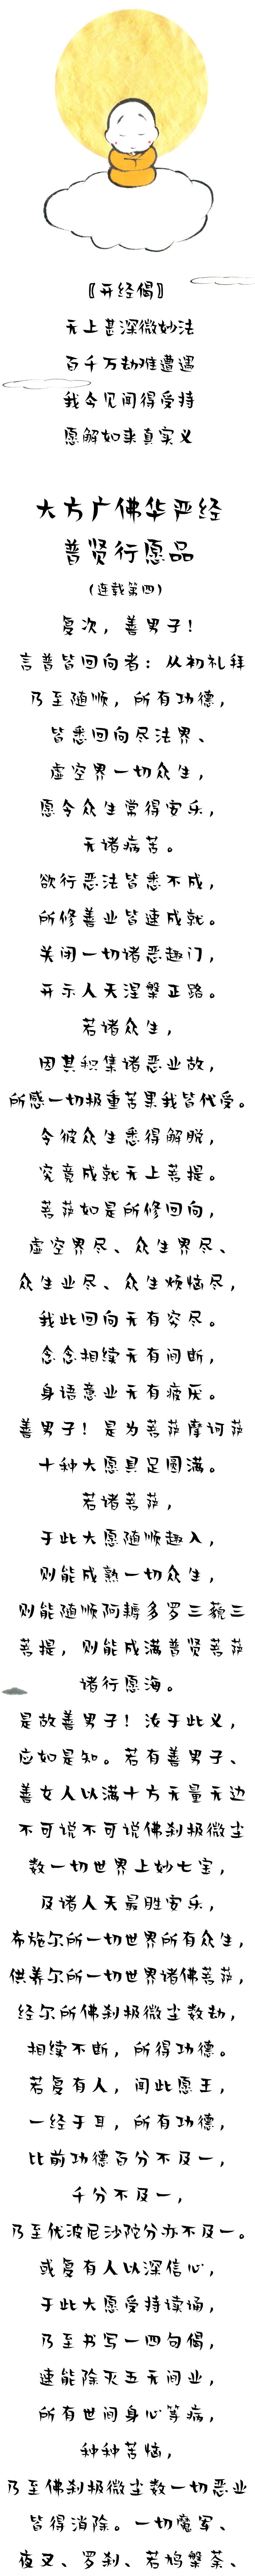 〖开经偈〗
无上甚深微妙法
百千万劫难遭遇
我今见闻得受持
愿解如来真实义
大方广佛华严经
普贤行愿品
(连载第四)
复次，善男子！
言普皆回向者：从初礼拜
乃至随顺，所有功德，
皆悉回向尽法界、
虚空界一切众生，
愿令众生常得安乐，
无诸病苦。
欲行恶法皆悉不成，
所修善业皆速成就。
关闭一切诸恶趣门，
开示人天涅槃正路。
若诸众生，
因其积集诸恶业故，
所感一切极重苦果我皆代受。
令彼众生悉得解脱，
究竟成就无上菩提。
菩萨如是所修回向，
虚空界尽、众生界尽、
众生业尽、众生烦恼尽，
我此回向无有穷尽。
念念相续无有间断，
身语意业无有疲厌。
善男子！是为菩萨摩诃萨
十种大愿具足圆满。
若诸菩萨，
于此大愿随顺趣入，
则能成熟一切众生，
则能随顺阿耨多罗三藐三
菩提，则能成满普贤菩萨
诸行愿海。
是故善男子！汝于此义，
应如是知。若有善男子、
善女人以满十方无量无边
不可说不可说佛刹极微尘
数一切世界上妙七宝，
及诸人天最胜安乐，
布施尔所一切世界所有众生，
供养尔所一切世界诸佛菩萨，
经尔所佛刹极微尘数劫，
相续不断，所得功德。
若复有人，闻此愿王，
一经于耳，所有功德，
比前功德百分不及一，
千分不及一，
乃至优波尼沙陀分亦不及一。
或复有人以深信心，
于此大愿受持读诵，
乃至书写一四句偈，
速能除灭五无间业，
所有世间身心等病，
种种苦恼，
乃至佛刹极微尘数一切恶业
皆得消除。一切魔军、
夜叉、罗刹、若鸠槃荼、